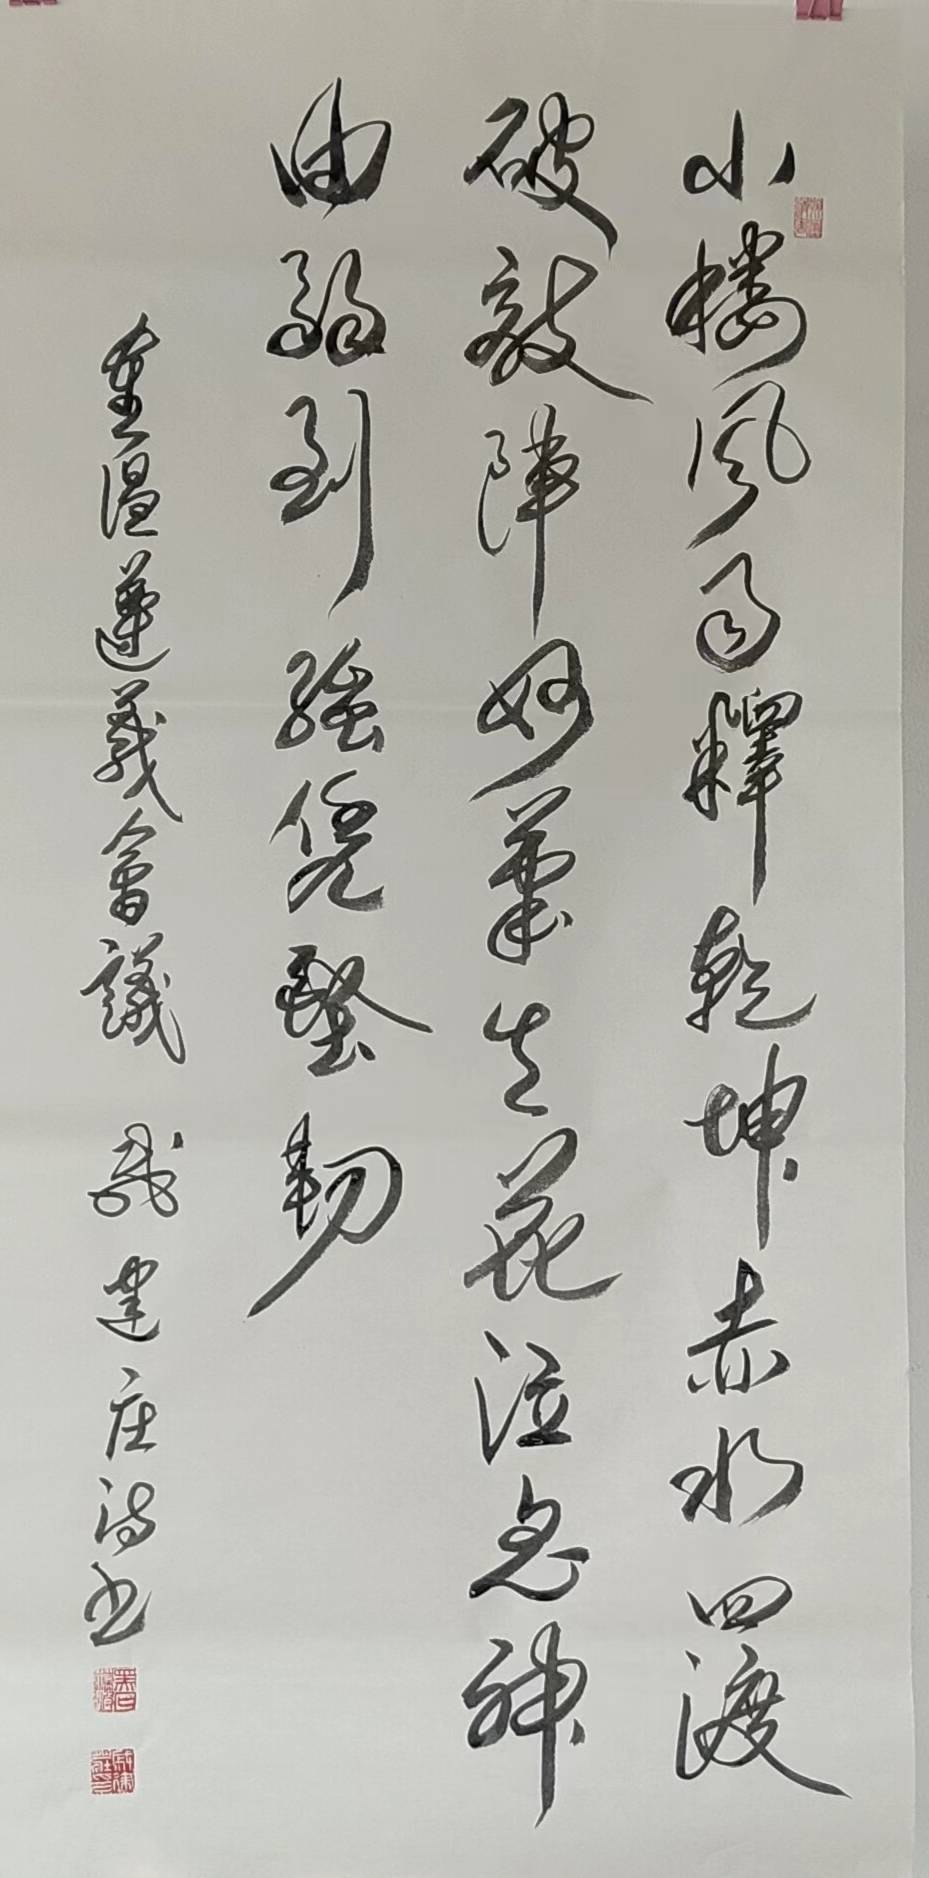 小楼风雨释乾坤赤水四渡
破敌阵妙笔生花泣鬼神
由弱到强凭坚韧
重温遵义會議 戚建庄诗书